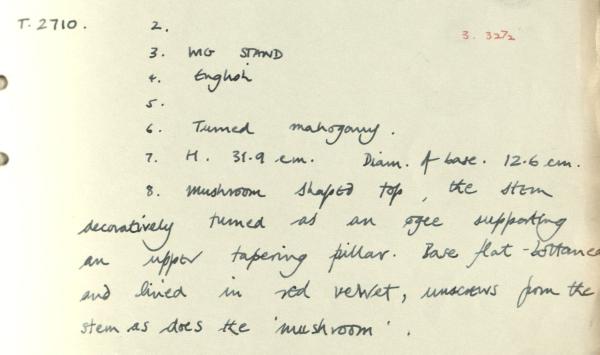 T. 2710. 2.
3. 3272
3. WIG STAND
4. English
5.
6. Turned mahogany.
7. H. 31.9 cm. Diam. of base. 12.6 cm.
8. Mushroom shaped top, the stem
decoratively turned as an ogee supporting
an upper tapering pillar. Base flat-bottomed
and lined in red velvet, unscrews from the
stem as does the 'mushroom'.